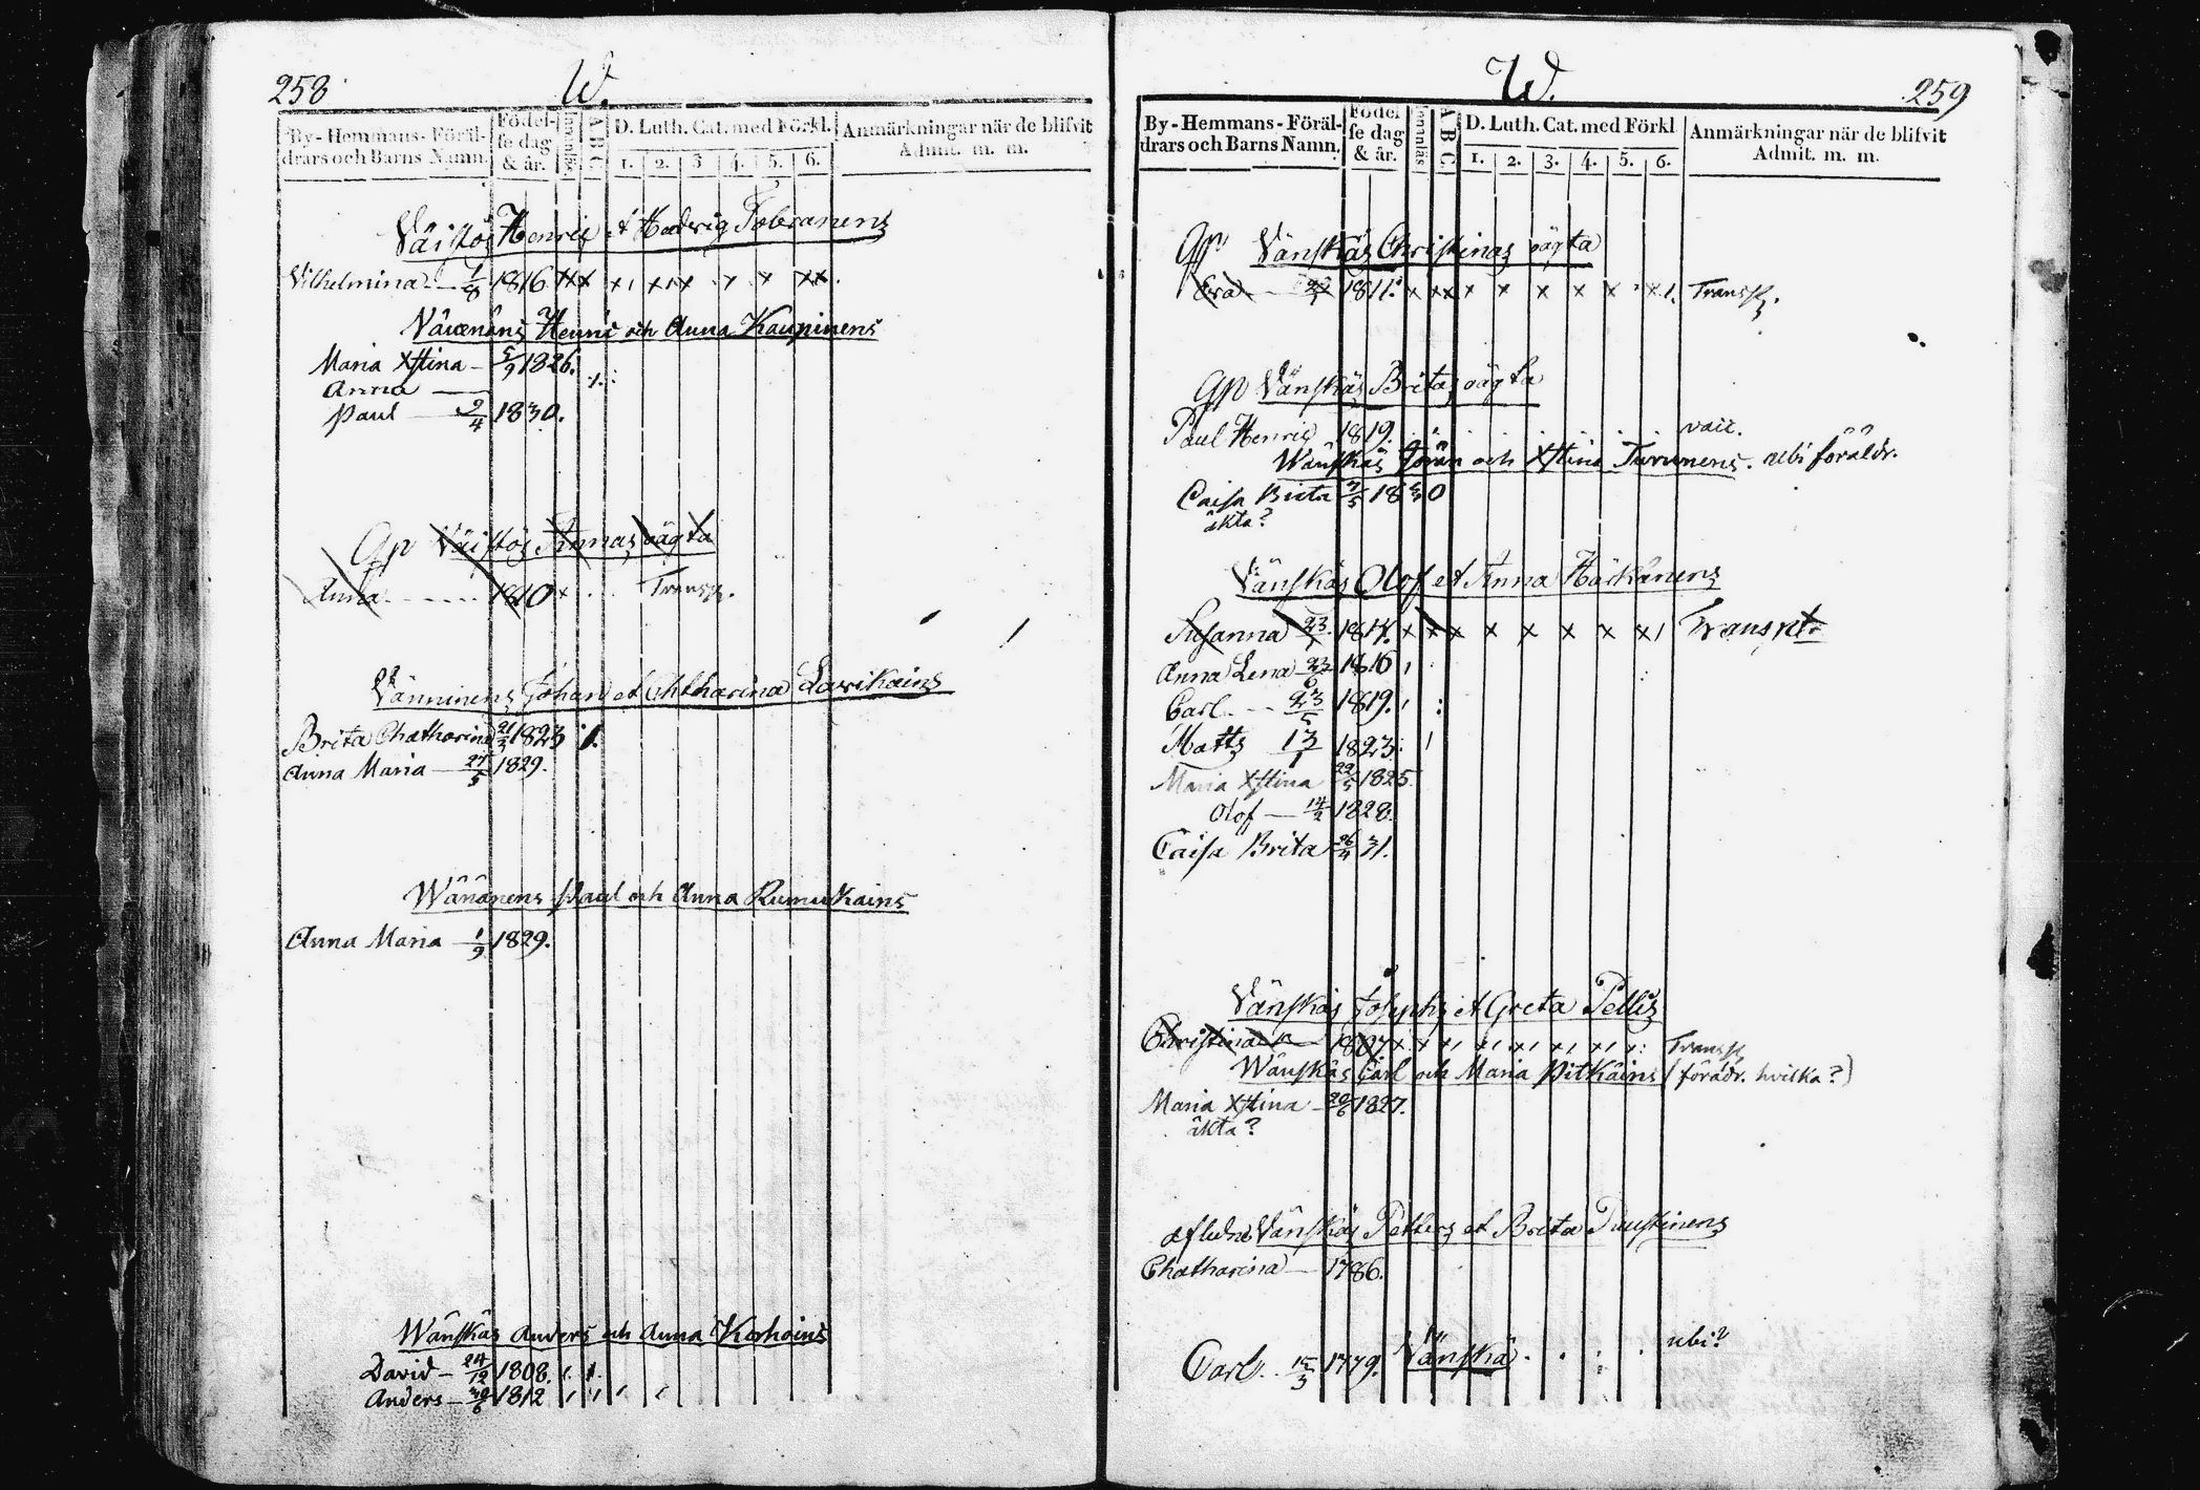 258
W.
By-Hemmans-Föräl-
drars och Barns Namn.
Födel-
se dag
& år.
A B C
D. Luth. Cat. med Förkl.
1. 2. 3 4. 5. 6.
Anmärkningar när de blifvit
Admit. m. m.
Väistös Henric et Hedvig
Vilhelmina 1/8 1816 xx x x x xx
Henric och Anna Kaupinens
Maria Xstina - 5/9 1826.
Anna
Paul 2/4 1830.
Väistös Annas oägta
Anna 1810 x Transp.
Vänninens Johan et Chatharina
Brita Chatharina 21/3 1823
Anna Maria 27/3 1829.
Wänänens Paul och Anna Rumukains
Anna Maria 1/9 1829.
Wänskäs Anders och Anna Korhoins
David 24/12 1808.
Anders 30/6 1812
W.
259
By-Hemmans-Föräl-
drars och Barns Namn.
Födel
se dag
& år.
A B C
D. Luth. Cat. med Förkl
1. 2. 3. 4. 5. 6.
Anmärkningar när de blifvit
Admit. m. m.
Vänskäs Christinas oägta
Eva 1811. x xx x x x x x x 1. Transp.
Vänskäs Britas oägta
Paul Henric 1819. vacc.
Wänskäs Göran och Xstina Turunens. ubi föräldr.
Caisa Brita 7/5 1830
äkta?
Vänskäs Olof et Anna Härkänens
Susanna 23 1814. x x x x x x x x1 Transp.
Anna Lena 23/6 1816
Carl 23/5 1819.
Matts 13/1 1823.
Maria Xstina 22/5 1825
Olof 14/2 1828.
Caisa Brita 26/4 31.
Vänskäs Josephs et Greta Pellis
Christina 1807 Transp
Wänskäs Carl och Maria Pitkäins (förädr. hvilka?)
Maria Xstina 20/6 1827.
äkta?
afledne Vänskäs Petters et Brita Puustinens
Chatharina 1786.
Carl 15/3 1779. Vänskä. ubi?